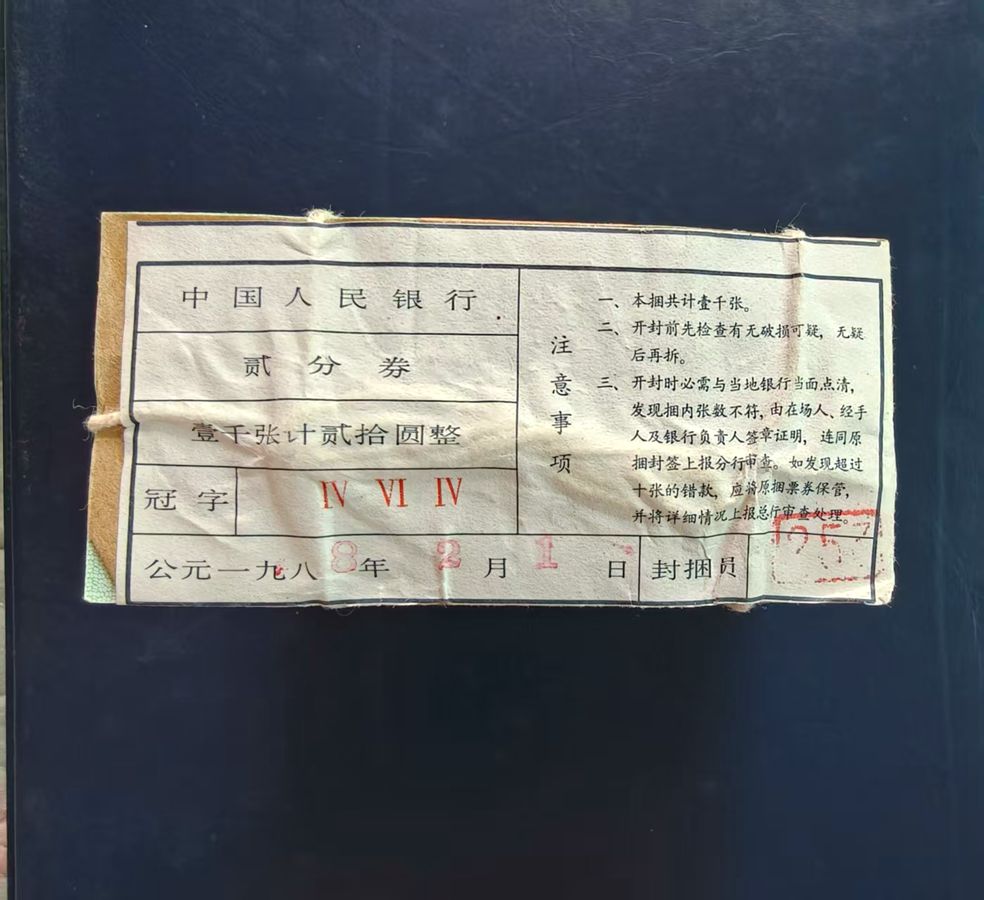 中国人民银行
贰分券
壹千张计贰拾圆整
冠字 Ⅳ Ⅵ Ⅳ
注意事项
一、本捆共计壹千张。
二、开封前先检查有无破损可疑，无疑
后再拆。
三、开封时必需与当地银行当面点清，
发现捆内张数不符，由在场人、经手
人及银行负责人签章证明，连同原
捆封签上报分行审查。如发现超过
十张的错款，应将原捆票券保管，
并将详细情况上报总行审查处理。
公元一九八8年2月1日 封捆员